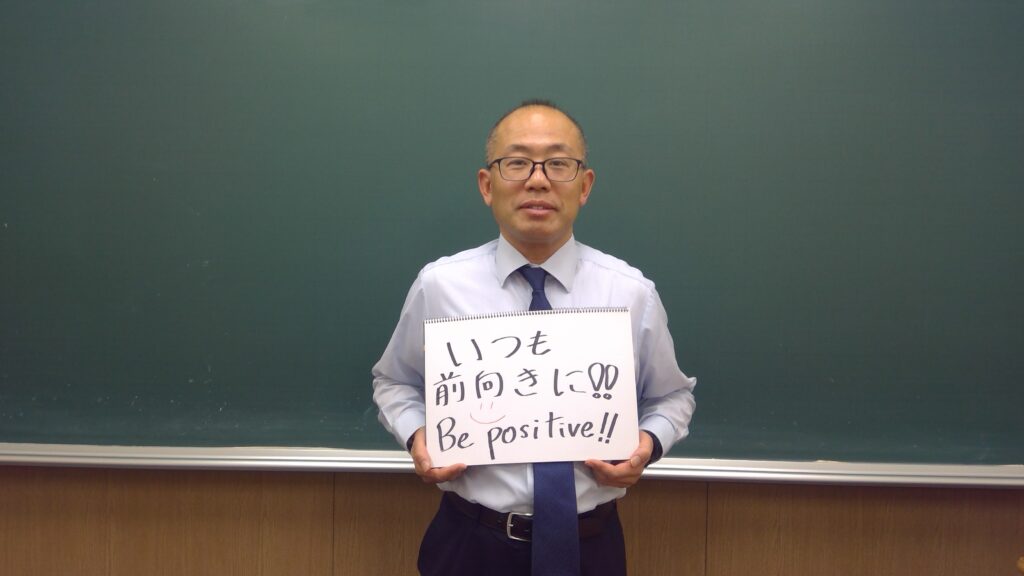 いつも
前向きに!!
Be positive!!